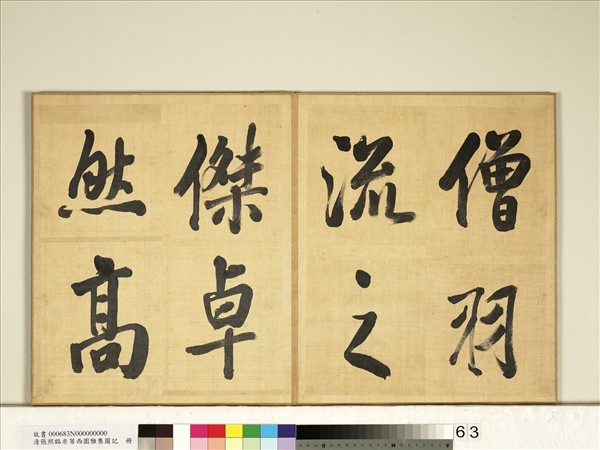 僧羽
流之
傑卓
然高
故書000683N000000000
清張照臨米芾西園雅集圖記 冊
63